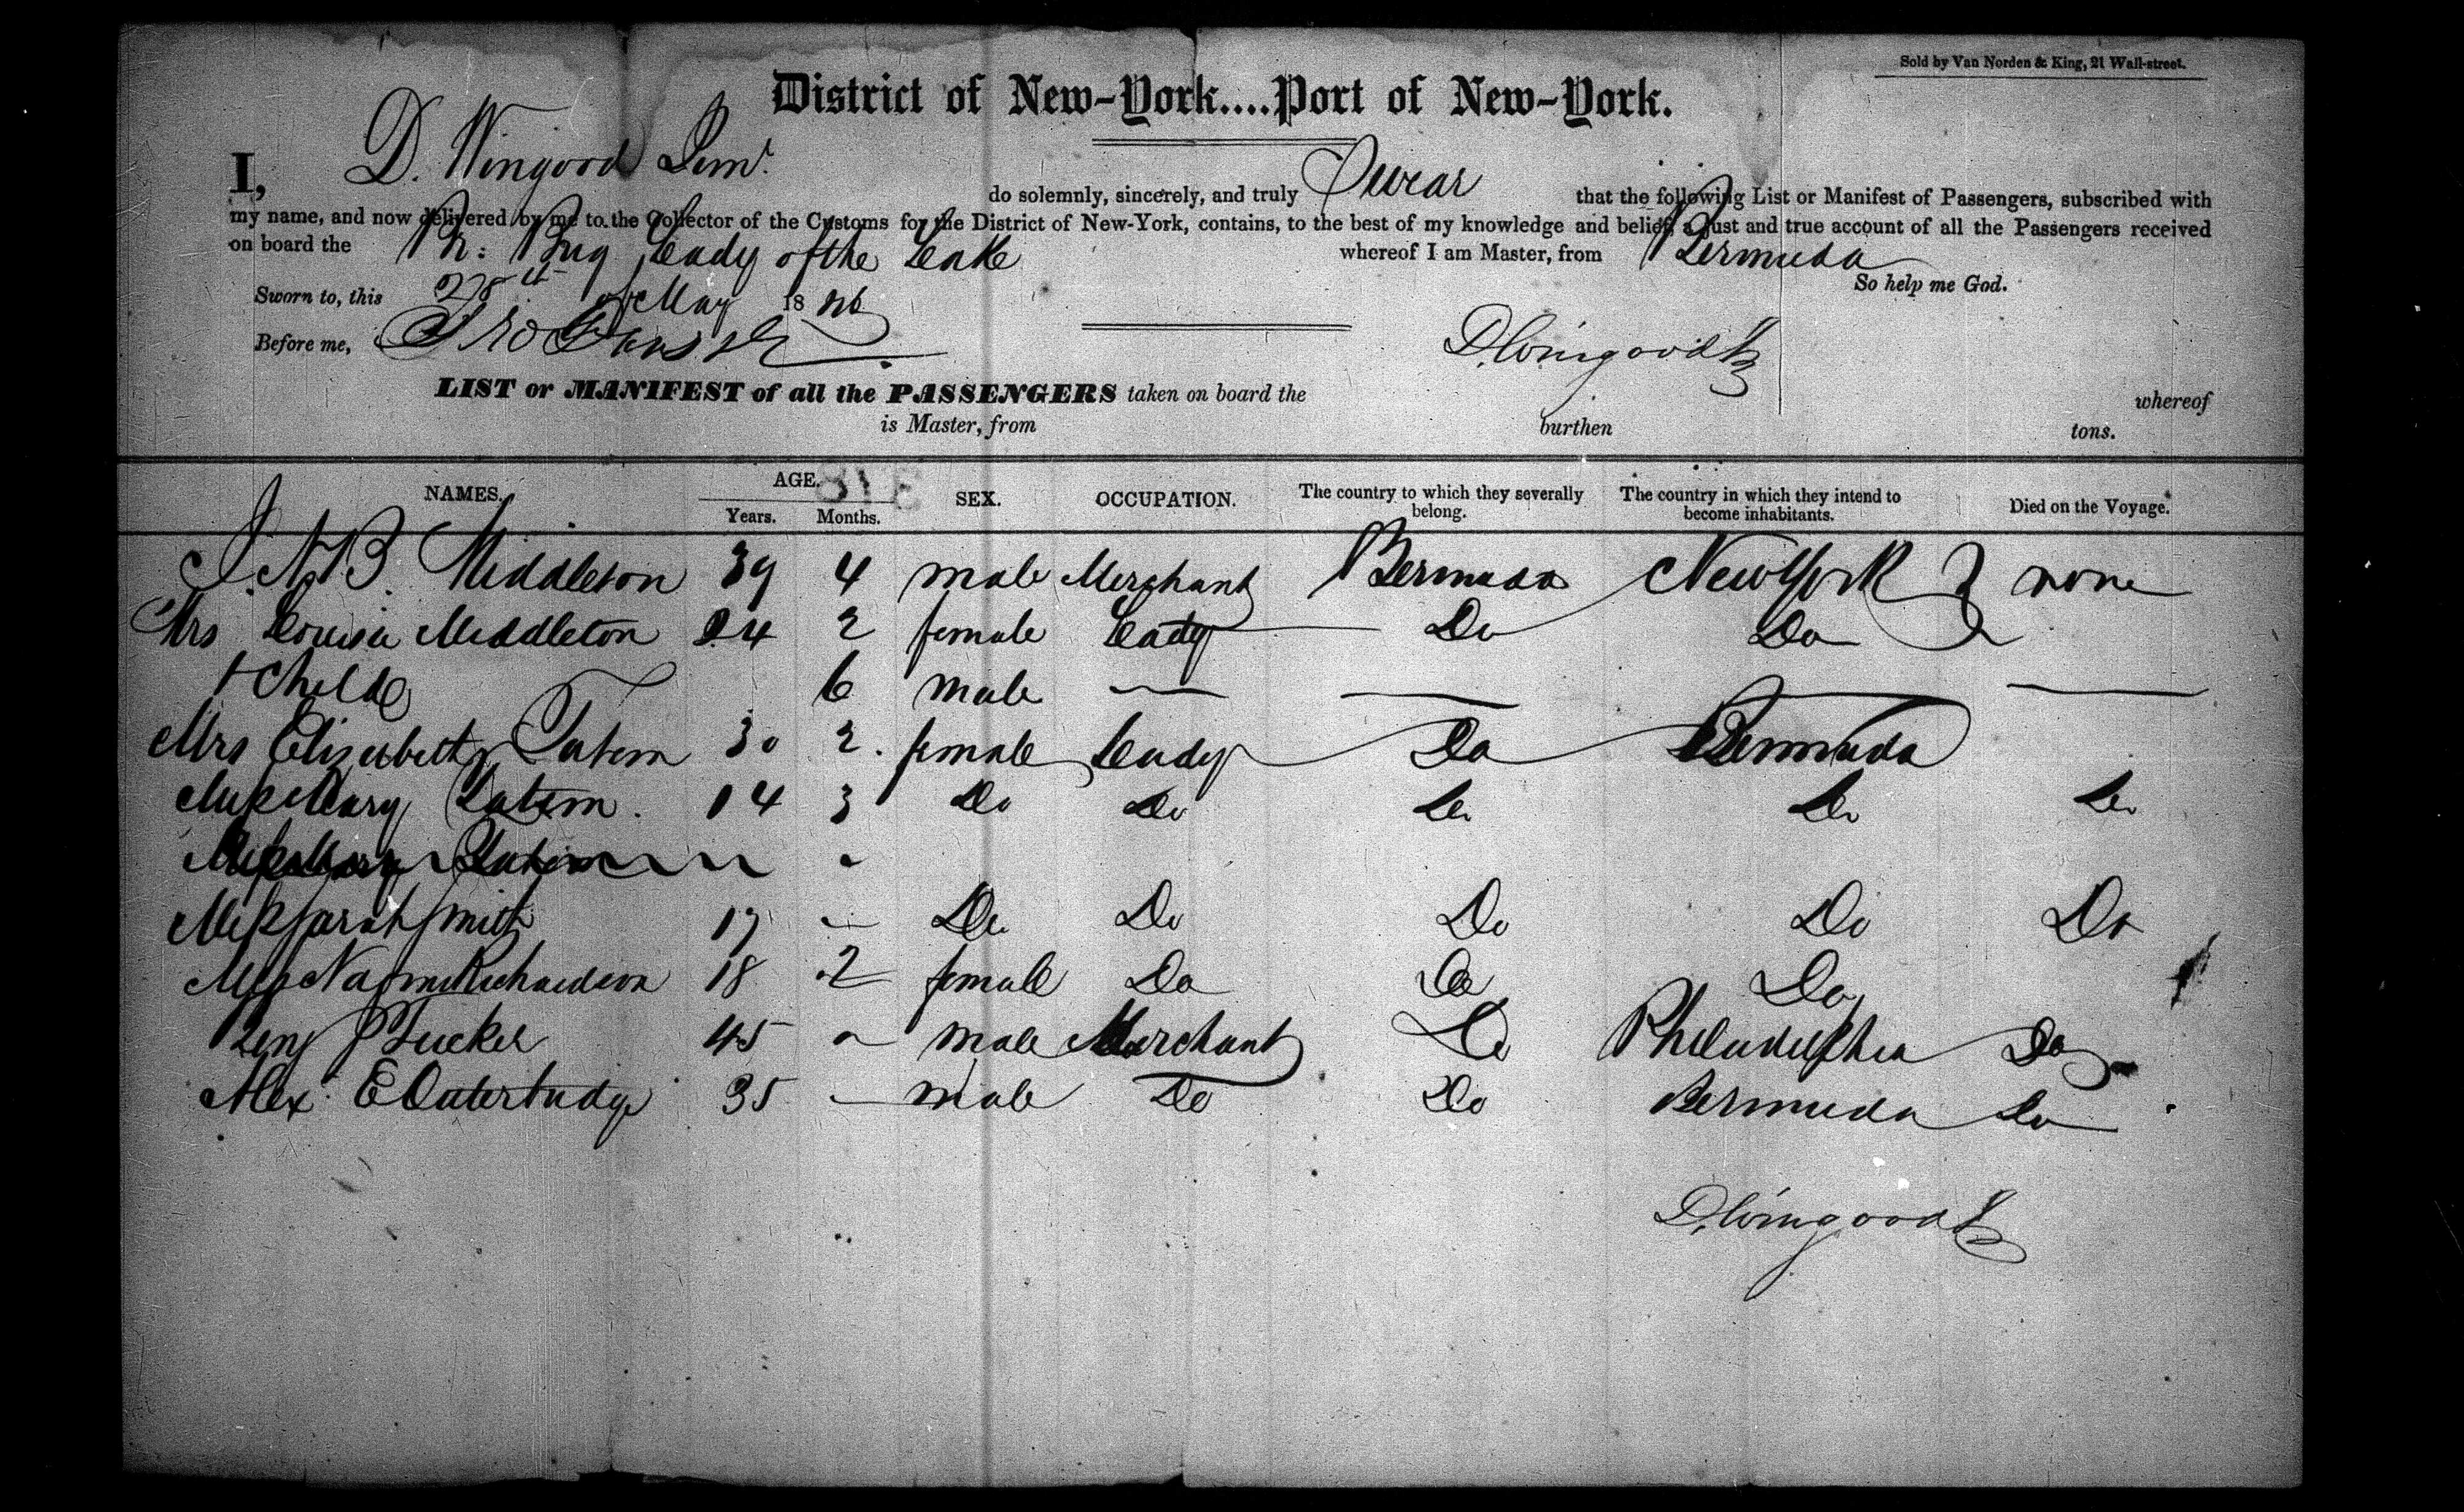 Sold by Van Norden & King, 21 Wall-street.
District of New-York....Port of New-York.
I, D. Wingood do solemnly, sincerely, and truly Swear that the following List or Manifest of Passengers, subscribed with
my name, and now delivered by me to the Collector of the Customs for the District of New-York, contains, to the best of my knowledge and belief, a just and true account of all the Passengers received
on board the Br: Brig Lady of the Lake whereof I am Master, from Bermuda
So help me God.
Sworn to, this 28th of May 18
Before me,
D. Wingood
LIST or MANIFEST of all the PASSENGERS taken on board the whereof
is Master, from burthen tons.
NAMES. AGE. Years. Months. SEX. OCCUPATION. The country to which they severally belong. The country in which they intend to become inhabitants. Died on the Voyage.
Middleton 39 4 male Merchant Bermuda New York none
Mrs Louisa Middleton 24 2 female Lady Do Do
+ Child 6 male —
Mrs Elizerbeth Tatem 30 2 female Lady Do Bermuda
Miss Mary Tatem 14 3 Do Do Do Do Do
Miss Mary Tatem
Miss Sarah Smith 17 — Do Do Do Do Do
Miss Richardson 18 2 female Do Do Do
Benj Tucker 45 - male Merchant Do Philadelphia Do
Alex. E Outerbridge 35 — male Do Do Bermuda Do
D. Wingood